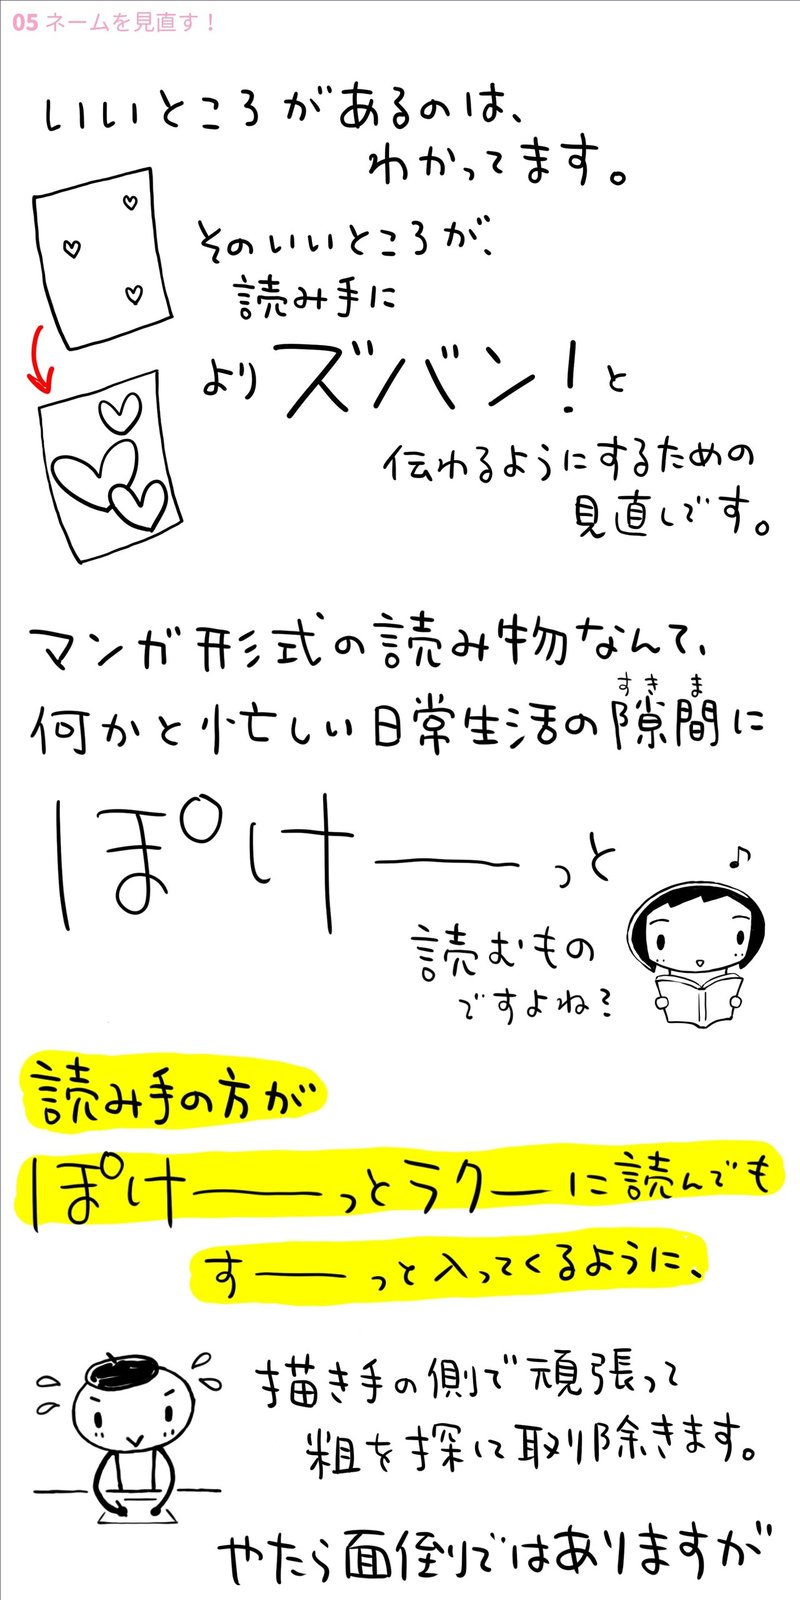 05 ネームを見直す！
いいところがあるのは、
わかってます。
そのいいところが、
読み手に
よりズバン！と
伝わるようにするための
見直しです。
マンガ形式の読み物なんて、
何かと忙しい日常生活の隙間に
すきま
ぽけーっと
読むもの
ですよね？
読み手の方が
ぽけーっとラクーに読んでも
すーっと入ってくるように、
描き手の側で頑張って
粗を探して取り除きます。
やたら面倒ではありますが